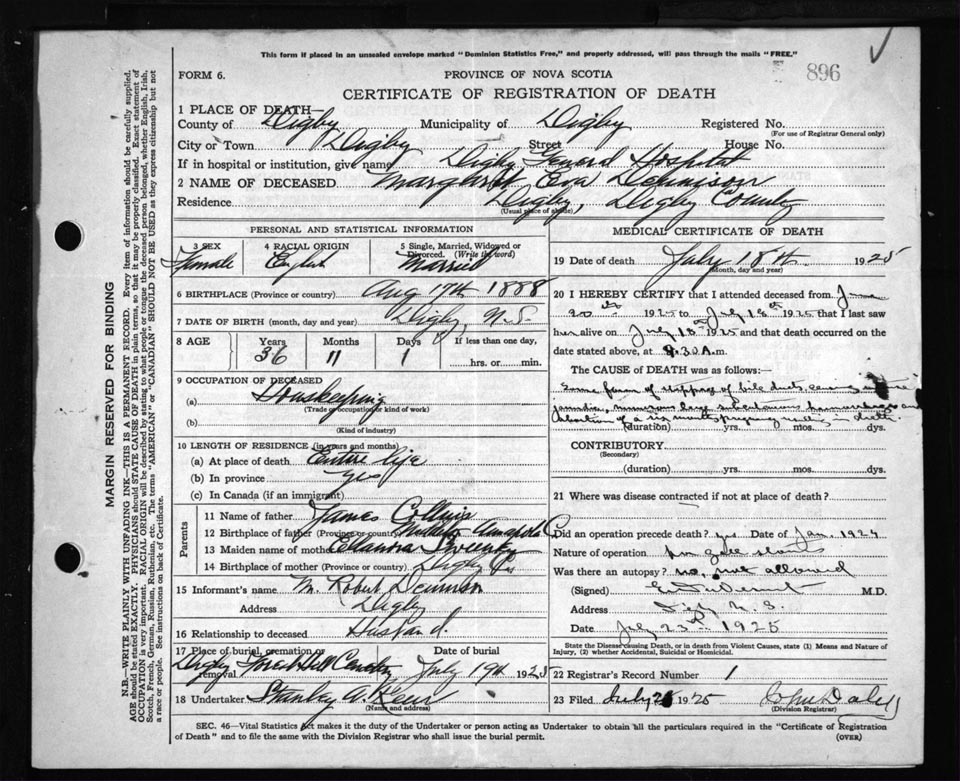 This form if placed in an unsealed envelope marked "Dominion Statistics Free," and properly addressed, will pass through the mails "FREE."
896
FORM 6.
PROVINCE OF NOVA SCOTIA
CERTIFICATE OF REGISTRATION OF DEATH
1 PLACE OF DEATH—
County of Digby Municipality of Digby Registered No.
(For use of Registrar General only)
City or Town Digby Street House No.
If in hospital or institution, give name Digby General Hospital
2 NAME OF DECEASED Margaret Eva Dennison
Residence Digby, Digby County
(Usual place of abode)
PERSONAL AND STATISTICAL INFORMATION
3 SEX 4 RACIAL ORIGIN 5 Single, Married, Widowed or Divorced. (Write the word)
Female English Married
6 BIRTHPLACE (Province or country) Aug 17th 1888
7 DATE OF BIRTH (month, day and year) Digby, N.S.
8 AGE Years Months Days If less than one day,
36 11 1 hrs. or min.
9 OCCUPATION OF DECEASED
(a) Housekeeping
(Trade or occupation or kind of work)
(b)
(Kind of industry)
10 LENGTH OF RESIDENCE (in years and months)
(a) At place of death Entire life
(b) In province yes
(c) In Canada (if an immigrant)
Parents
11 Name of father James Collins
12 Birthplace of father (Province or country)
13 Maiden name of mother Ellanora
14 Birthplace of mother (Province or country) Digby Co
15 Informant's name M. Robert Dennison
Address Digby
16 Relationship to deceased Husband.
17 Place of burial, cremation or removal Date of burial
Digby Forest Hill Cemetery July 19th 1925
18 Undertaker Stanley A.
(Name and address)
MEDICAL CERTIFICATE OF DEATH
19 Date of death July 18th 1925
(Month, day and year)
20 I HEREBY CERTIFY that I attended deceased from June
20th 1925 to July 18th 1925 that I last saw
her alive on July 18th 1925 and that death occurred on the
date stated above, at 8.30 A.m.
The CAUSE of DEATH was as follows:—
Some form of stoppage of bile ducts causing
jaundice, haemorrhages and
abortion of a six months pregnancy in death
(duration) yrs. mos. dys.
CONTRIBUTORY
(Secondary)
(duration) yrs. mos. dys.
21 Where was disease contracted if not at place of death?
Did an operation precede death? yes Date of Jan. 1924
Nature of operation for gall stones
Was there an autopsy? no, not allowed
(Signed) M.D.
Address Digby N.S.
Date July 23rd 1925
State the Disease causing Death, or in death from Violent Causes, state (1) Means and Nature of Injury, (2) whether Accidental, Suicidal or Homicidal.
22 Registrar's Record Number 1
23 Filed July 1925 John Daley
(Division Registrar)
SEC. 46—Vital Statistics Act makes it the duty of the Undertaker or person acting as Undertaker to obtain all the particulars required in the "Certificate of Registration
of Death" and to file the same with the Division Registrar who shall issue the burial permit.
(OVER)
MARGIN RESERVED FOR BINDING
N.B.—WRITE PLAINLY WITH UNFADING INK—THIS IS A PERMANENT RECORD. Every item of information should be carefully supplied.
AGE should be stated EXACTLY. PHYSICIANS should STATE CAUSE OF DEATH in plain terms, so that it may be properly classified. Exact statement of
OCCUPATION is very important. RACIAL ORIGIN will be described by stating to what people or tongue the deceased person belonged, whether English, Irish,
Scotch, French, German, Russian, Ruthenian, etc. The terms "AMERICAN" or "CANADIAN" SHOULD NOT BE USED as they express citizenship but not
a race or people. See instructions on back of Certificate.